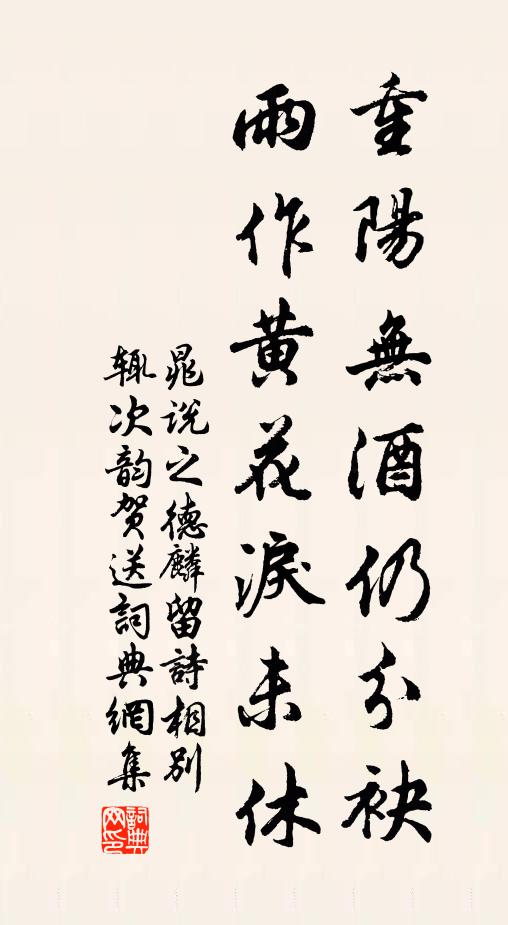 重陽無酒仍分袂
雨作黄花淚未休
晁说之德麟留詩相别
辄次韵贺送詞典網集
詞典
网印